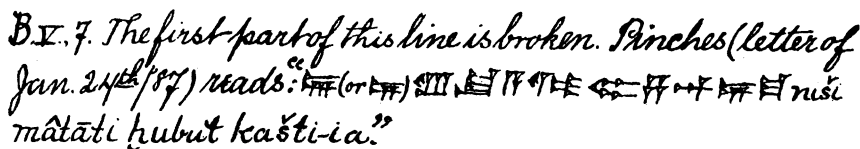 B.V., 7. The first part of this line is broken. Pinches (letter of
Jan. 24th/87) reads: "(or ) niši
mâtāti ḫubut kašti-ia."